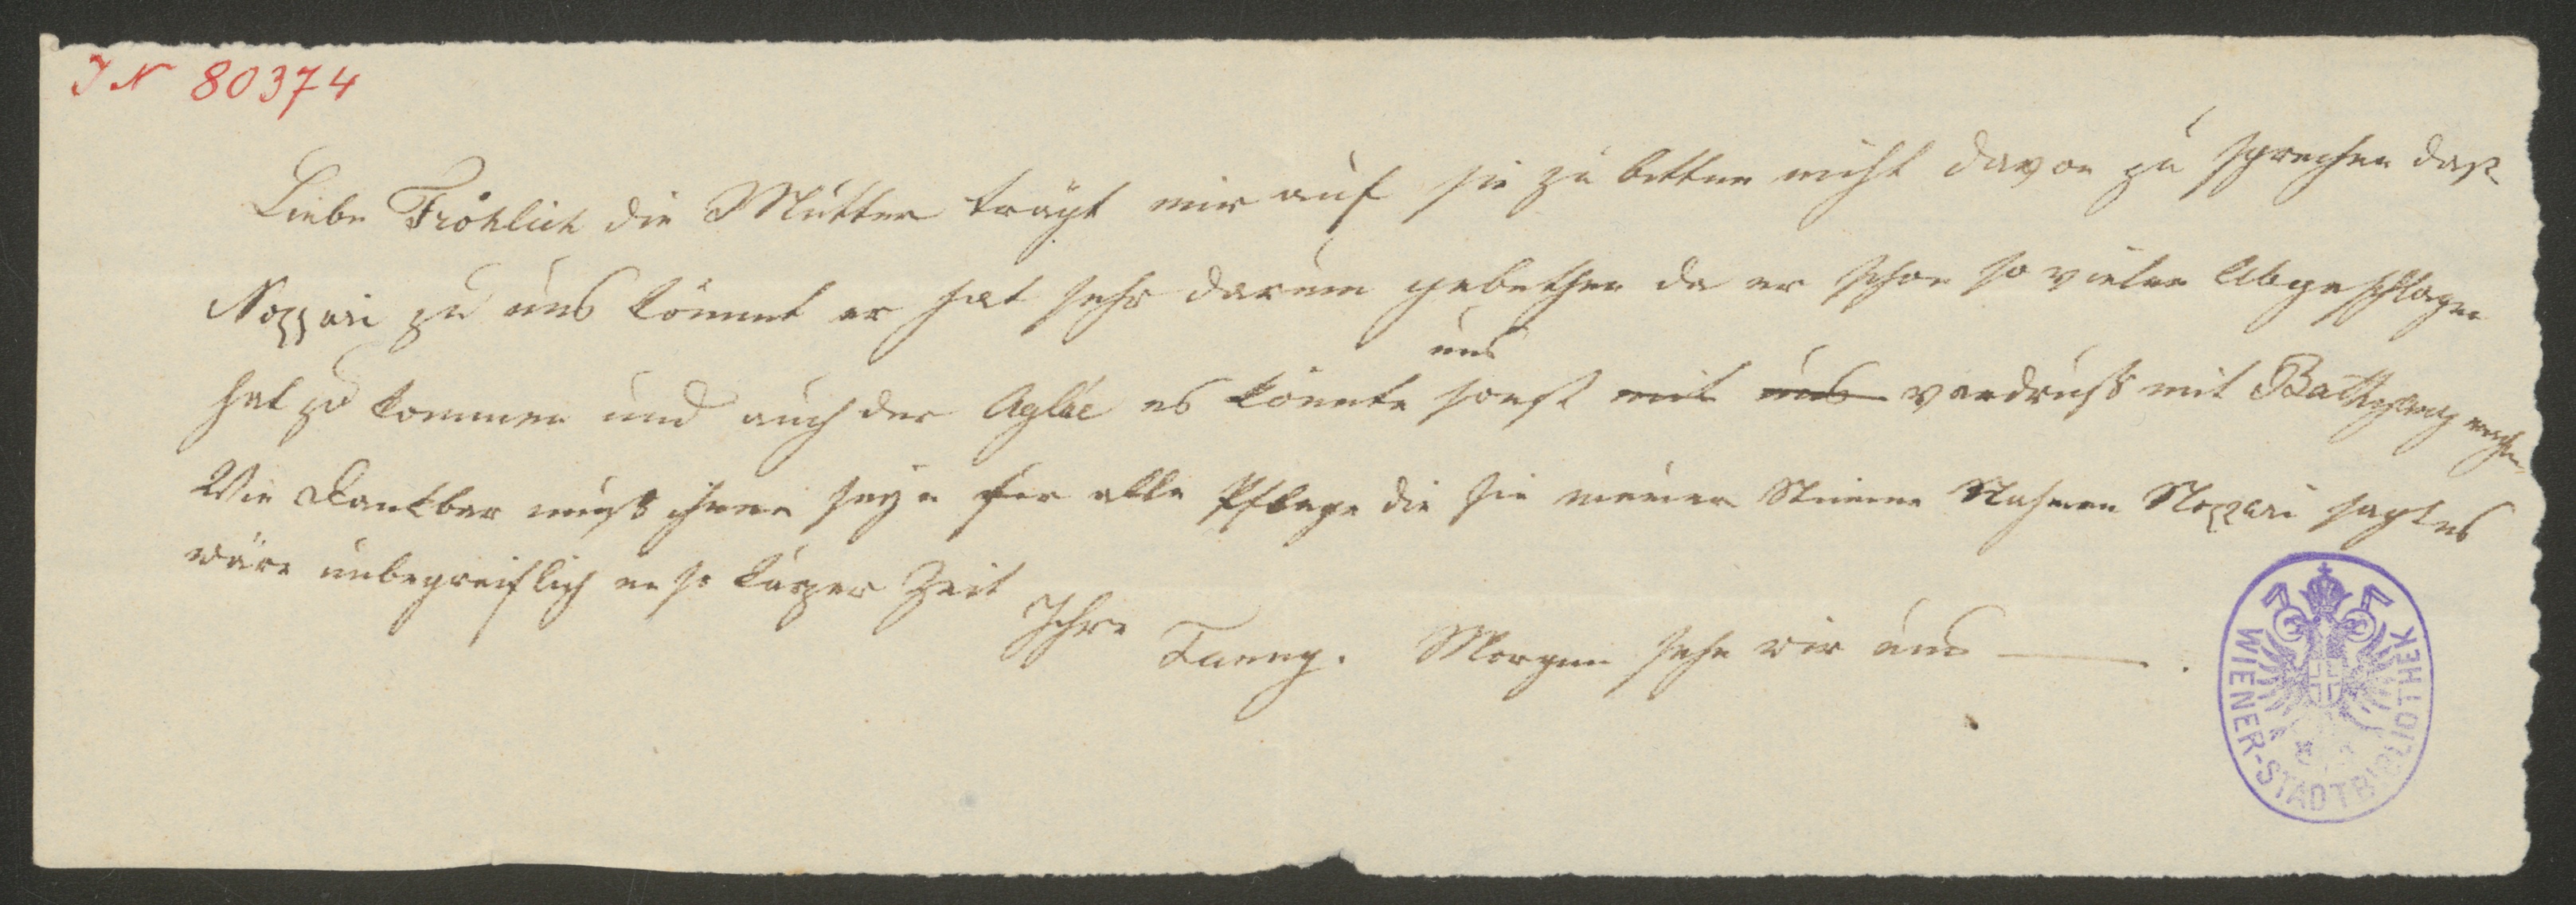 IN 80374
Liebe Fröhlich die Mutter trägt mir auf sie zu bitten nicht davon zu sprechen daß
Nozzari zu uns kömmt er hat sehr darum gebethen da er schon so vielen Abgeschlagen
hat zu kommen und auch der Agläe es könnte sonst mit uns uns verdruß mit machen
Wie Dankbar muß ihnen seyn für alle Pflege die sie meiner Stimme Nahmen Nozzari sagt es
wäre unbegreiflich in so kurzer Zeit
Ihre Fanny. Morgen sehe wir uns —.
WIENER-STADTBIBLIOTHEK